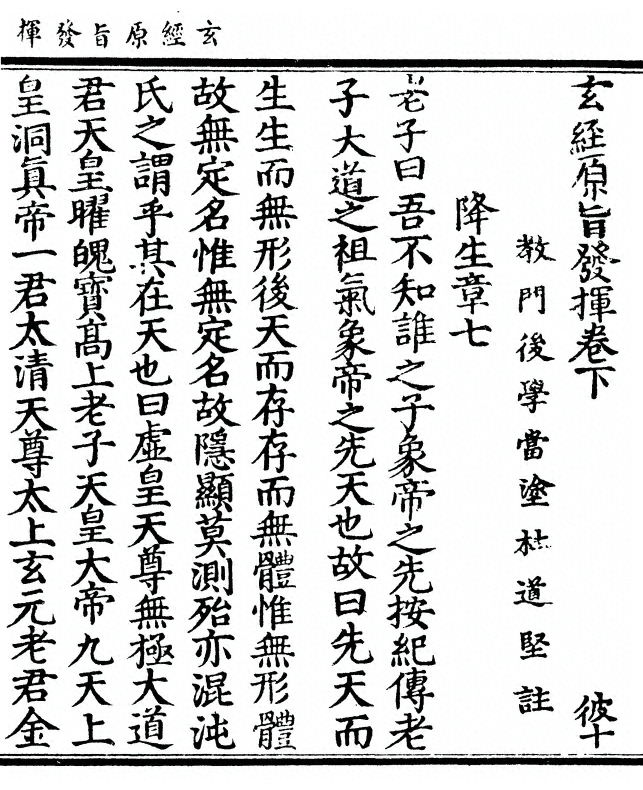 玄經原旨發揮
玄經原旨發揮卷下 彼十
教門後學當塗杜道堅註
降生章七
老子曰吾不知誰之子象帝之先按紀傳老
子大道之祖氣象帝之先天也故曰先天而
生生而無形後天而存存而無體惟無形體
故無定名惟無定名故隱顯莫測殆亦混沌
氏之謂乎其在天也曰虛皇天尊無極大道
君天皇曜魄寶高上老子天皇大帝九天上
皇洞真帝一君太清天尊太上玄元老君金